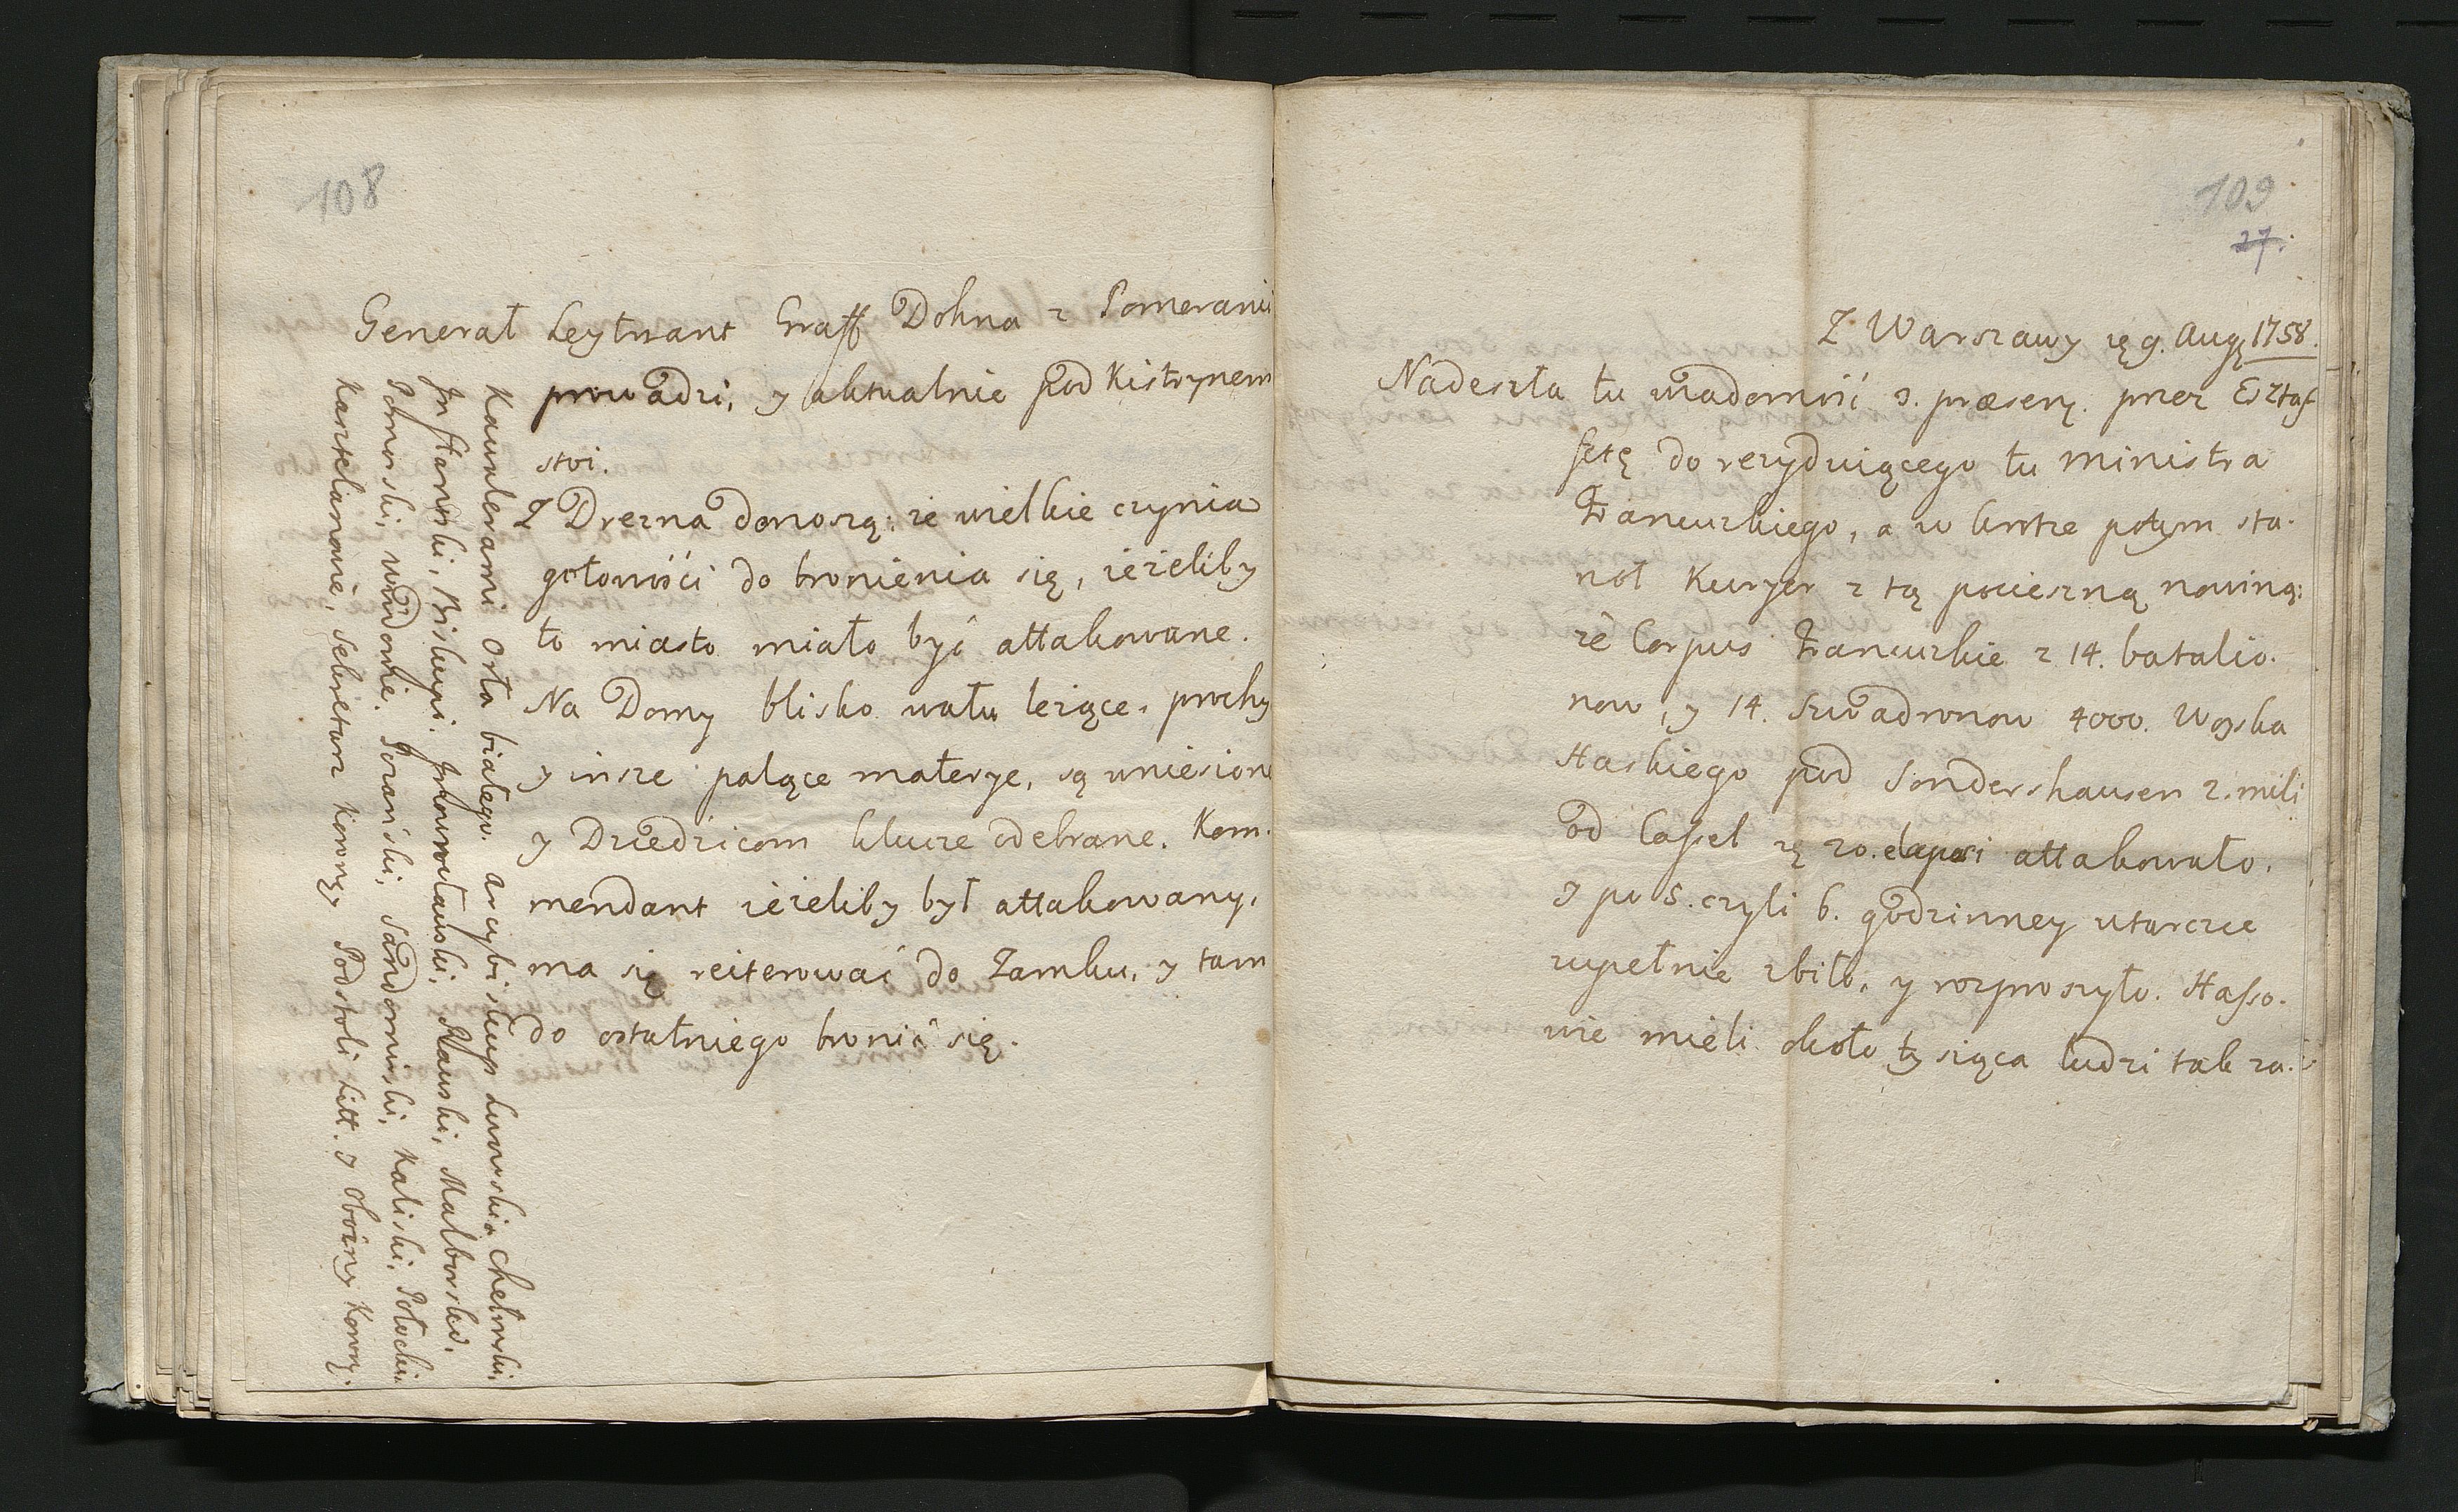 108
Generał Leytnant Graff Dohna z Pomeranii
prowadzi, y aktualnie pod Kistrynem
stoi.
Z Drezna donoszą: że wielkie czynia
gotowości do bronienia się, ieżeliby
to miasto miało być attakowane.
Na Domy blisko wału leżące, prochy
y insze palące materye, są wniesione
y Dziedzicom klucze odebrane. Kom-
mendant ieżeliby był attakowany,
ma się reiterować do Zamku, y tam
do ostatniego bronić się.
Kawalerami Orła białego. Arcybiskup Lwowski, Chełmski,
Inflanski, Biskupi. Inowrocławski, Rawski, Malborski,
Pomorski, woiwodowie. Poznański, Sandomirski, Kaliski, Połocki,
Kasztelanowie, Sekretarz Korony Podstoli Litt. y Oboźny Korony.
109
27.
Z Warszawy 9. Aug 1758.
Nadeszła tu wiadomość 3. præsen. przez Esztaf
fetę do rezyduiącego tu ministra
Francuzkiego, a w krotce potym sta-
noł Kuryer z tą pocieszną nowiną:
że Corpus Francuzkie z 14. batalio-
now, y 14. Szwadronow 4000. Woyska
Haskiego pod Sondershausen 2. mili
od Cassel 20. elapsi attakowało,
y po 5. czyli 6. godzinney utarczce
zupełnie zbiło, y rozproszyło. Hasso-
wie mieli około tysiąca ludzi tak za-